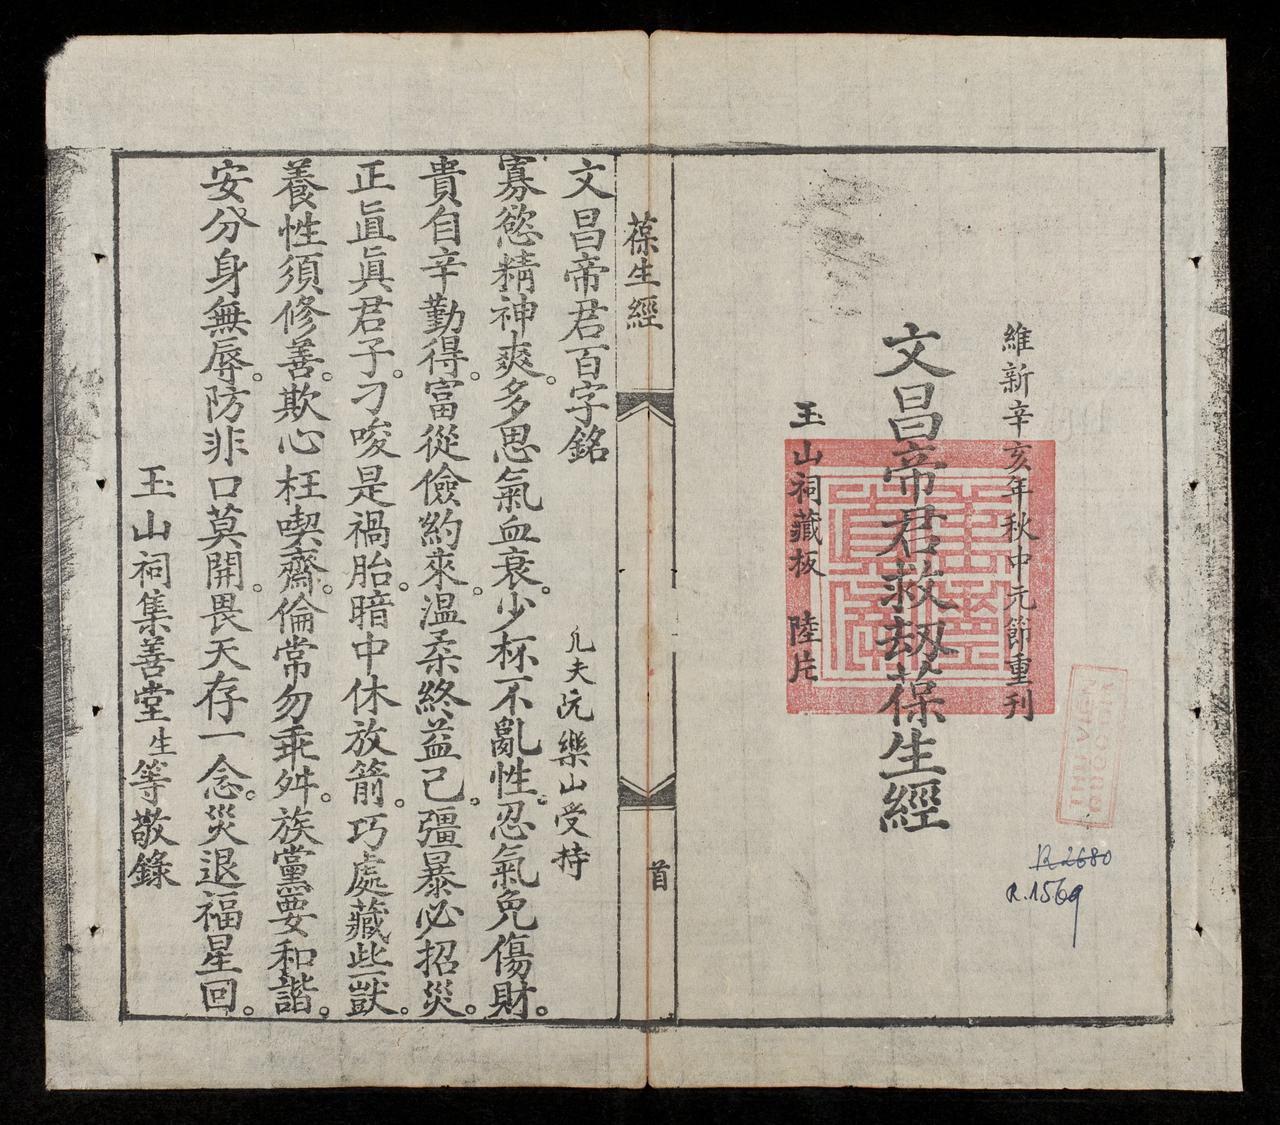 維新辛亥年秋中元節重刊
文昌帝君救刼葆生經
玉山祠藏板 陸片
R 2680
R.1569
葆生經
首
文昌帝君百字銘 凢夫阮樂山受持
寡慾精神爽。多思氣血衰。少杯不亂性。忍氣免傷財。
貴自辛勤得。富從儉約來。温柔終益己。彊暴必招災。
正直眞君子。刁唆是禍胎。暗中休放箭。巧處藏些獃。
養性須修善。欺心枉喫齋。倫常勿乖舛。族黨要和諧。
安分身無辱。防非口莫開。畏天存一念。災退福星回。
玉山祠集善堂生等敬錄